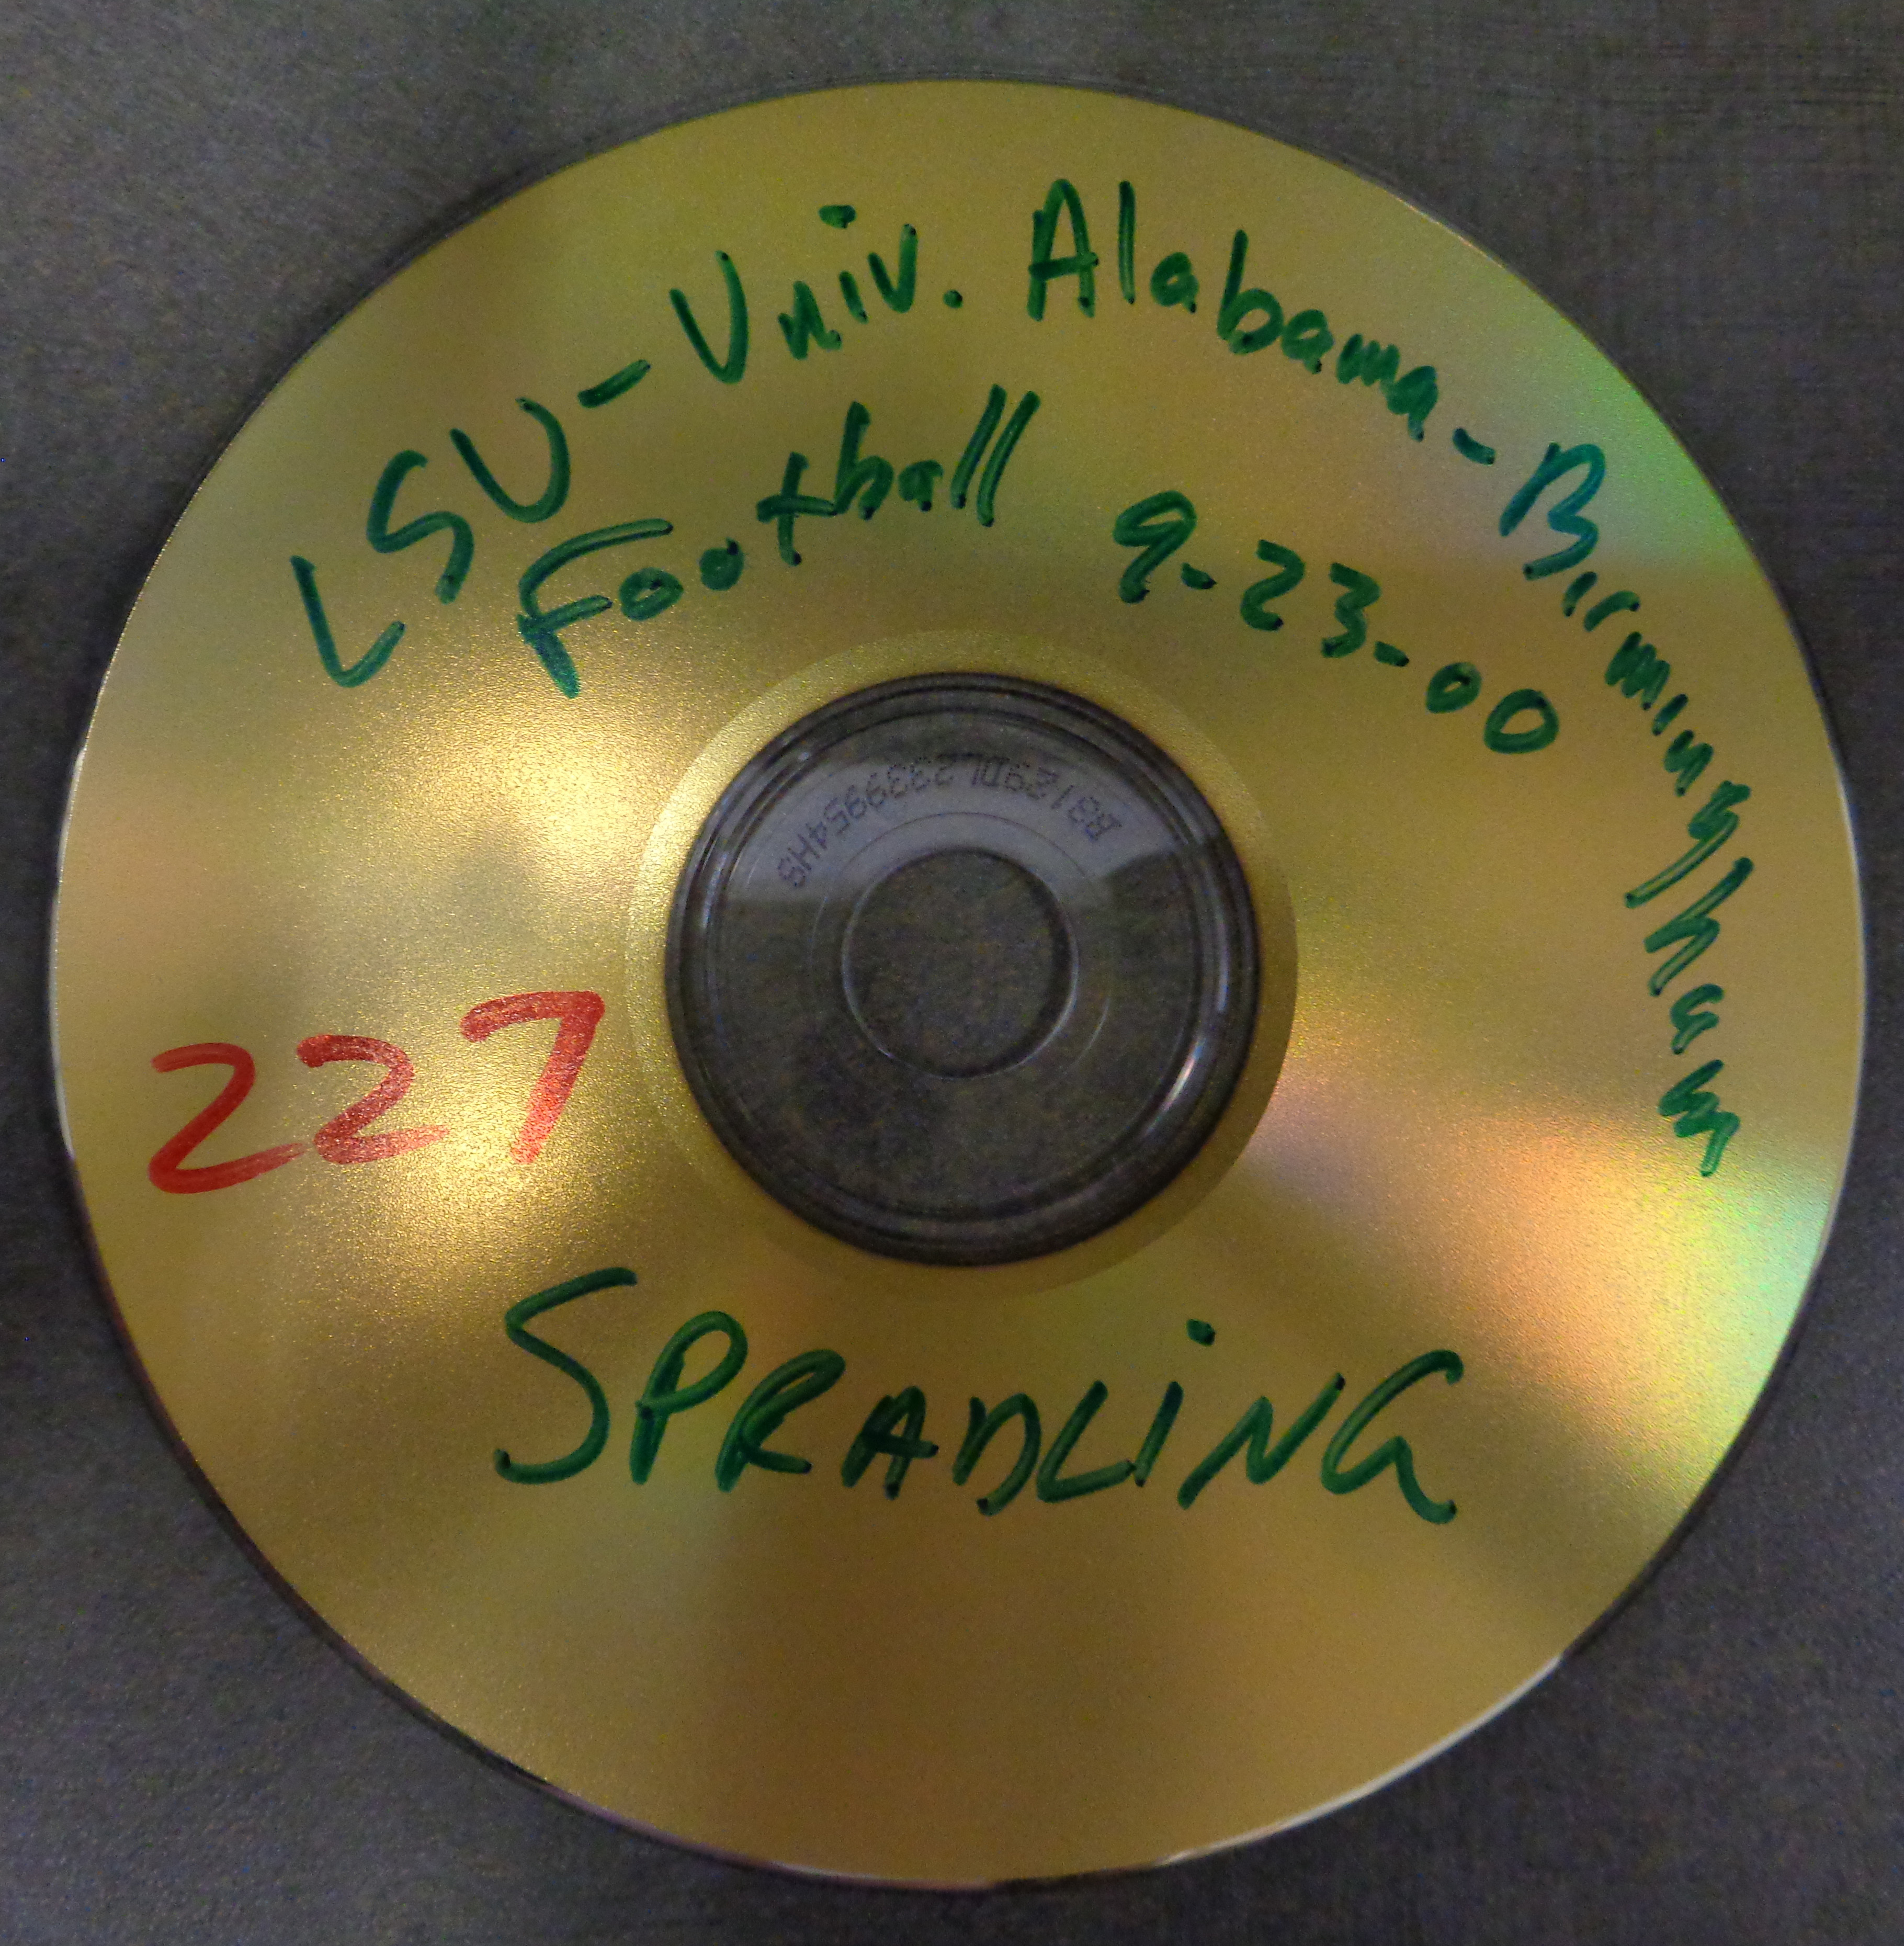 LSU - Univ. Alabama - Birmingham
Football 9-23-00
B3129DL239954H9
227
SPRADLING